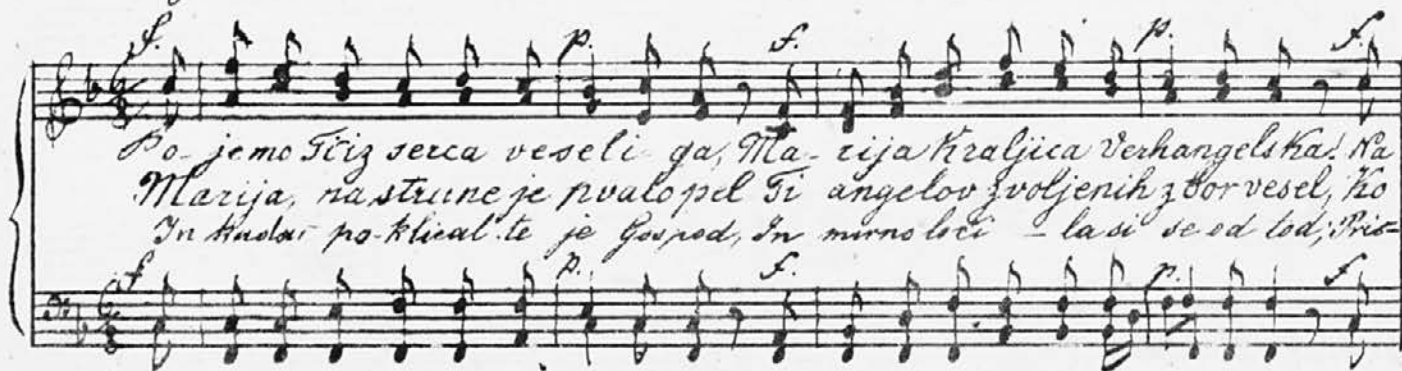 f. p. f. p. f.
Po-jemo Ti iz serca veseli-ga, Ma-rija Kraljica Verhangelska! Na
Marija, na strune je hvalo pel Ti angelov zvoljenih zbor vesel, Ko
In kadar po-klical te je Gospod, In mirno loči-la si se od tod; Pris-
f p. f. p. f.